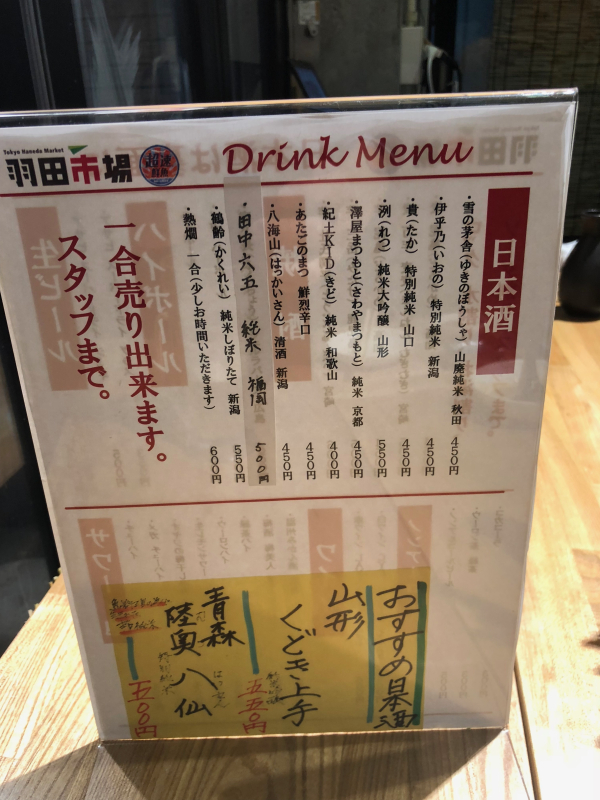 Tokyo Haneda Market
羽田市場
超速鮮魚
Drink Menu
日本酒
・雪の茅舎(ゆきのぼうしゃ) 山廃純米 秋田 450円
・伊乎乃(いおの) 特別純米 新潟 450円
・貴(たか) 特別純米 山口 450円
・洌(れつ) 純米大吟醸 山形 550円
・澤屋まつもと(さわやまつもと) 純米 京都 450円
・紀土KID(きど) 純米 和歌山 400円
・あたごのまつ 鮮烈辛口 450円
・八海山(はっかいさん) 清酒 新潟 450円
・田中六五 純米 福岡 500円
・鶴齢(かくれい) 純米しぼりたて 新潟 550円
・熱燗 一合(少しお時間いただきます) 600円
一合売り出来ます。
スタッフまで。
おすすめ日本酒
山形
くどき上手
五五〇円
青森
陸奥八仙
特別純米
五五〇円